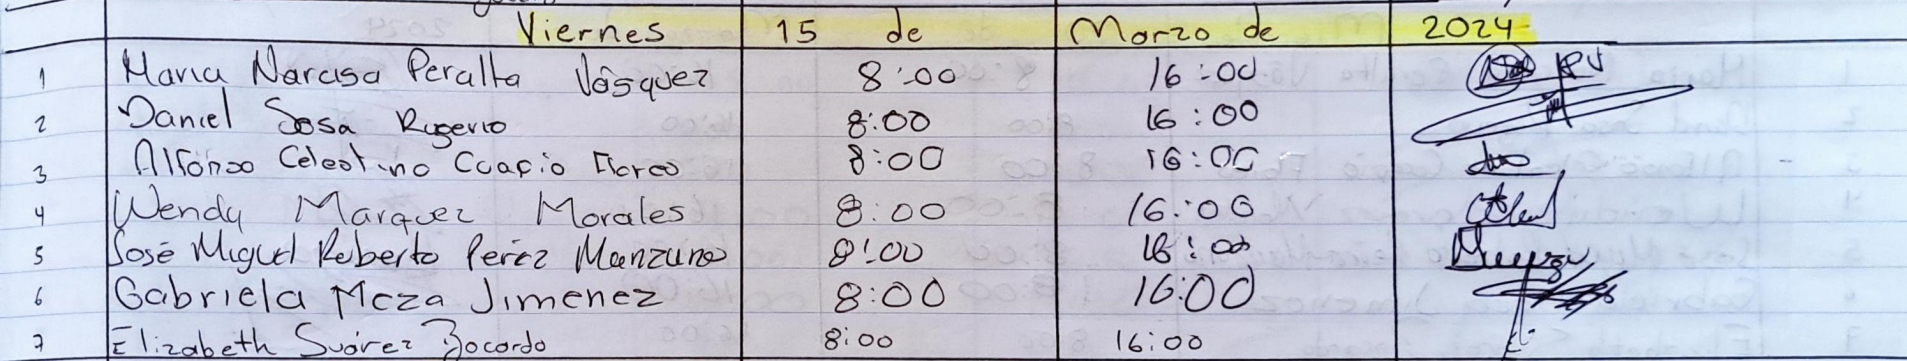 Viernes 15 de Marzo de 2024
1 Maria Narcisa Peralta Vásquez 8:00 16:00
2 Daniel Sosa Rugerio 8:00 16:00
3 Alfonso Celestino Cuapio Flores 8:00 16:00
4 Wendy Marquez Morales 8:00 16:00
5 José Miguel Roberto Peréz Manzano 8:00 16:00
6 Gabriela Meza Jimenez 8:00 16:00
7 Elizabeth Suárez Bocardo 8:00 16:00